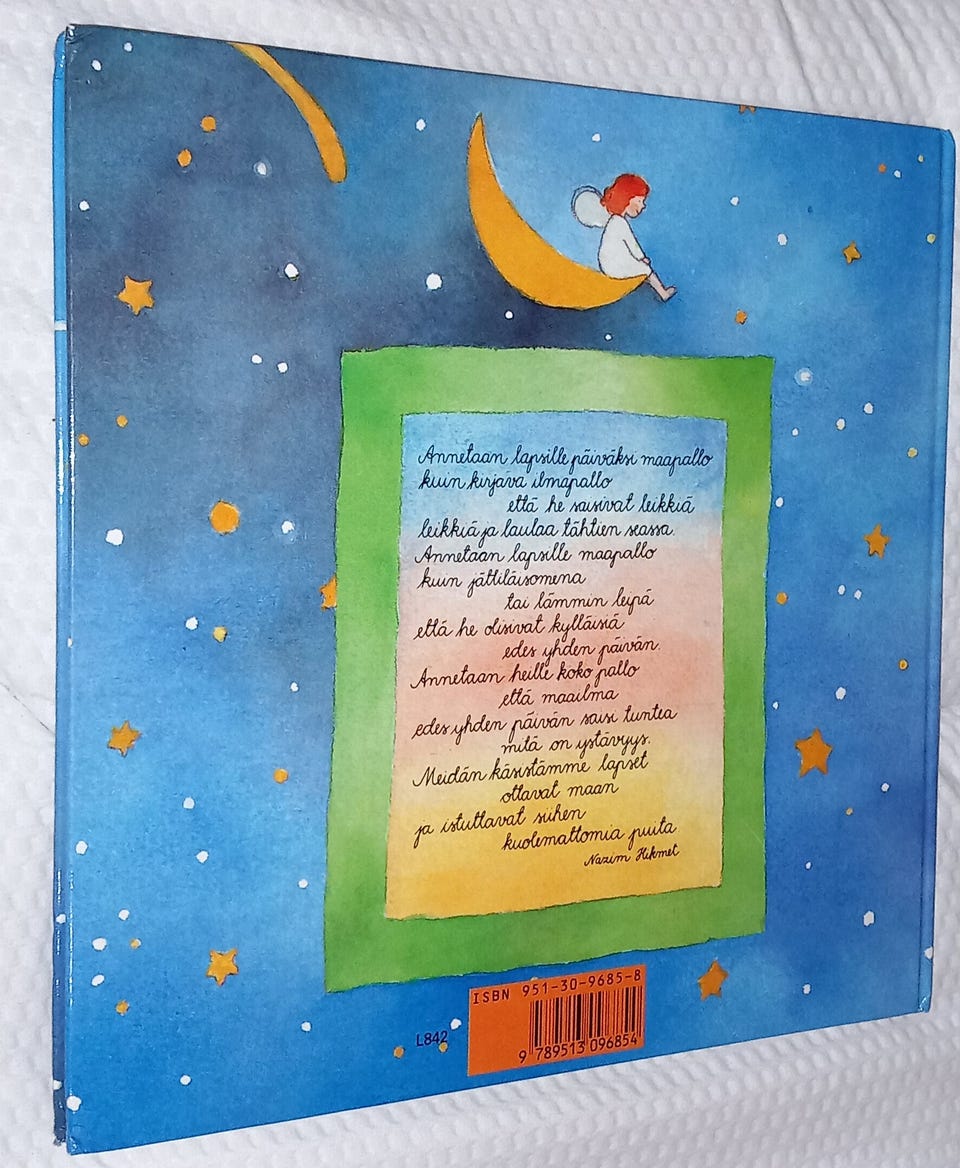 Annetaan lapsille päiväksi maapallo
kuin kirjava ilmapallo
että he saisivat leikkiä
leikkiä ja laulaa tähtien seassa.
Annetaan lapsille maapallo
kuin jättiläisomena
tai lämmin leipä
että he olisivat kylläisiä
edes yhden päivän.
Annetaan heille koko pallo
että maailma
edes yhden päivän saisi tuntea
mitä on ystävyys.
Meidän käsistämme lapset
ottavat maan
ja istuttavat siihen
kuolemattomia puita
Nazim Hikmet
ISBN 951-30-9685-8
L842
9 789513 096854